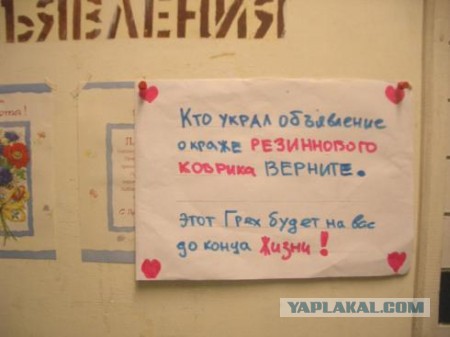 ЪЯВЛЕНИЯ
Кто украл объявление
о краже РЕЗИННОВОГО
КОВРИКА ВЕРНИТЕ.
Этот Грех будет на вас
до конца Жизни!
YAPLAKAL.COM